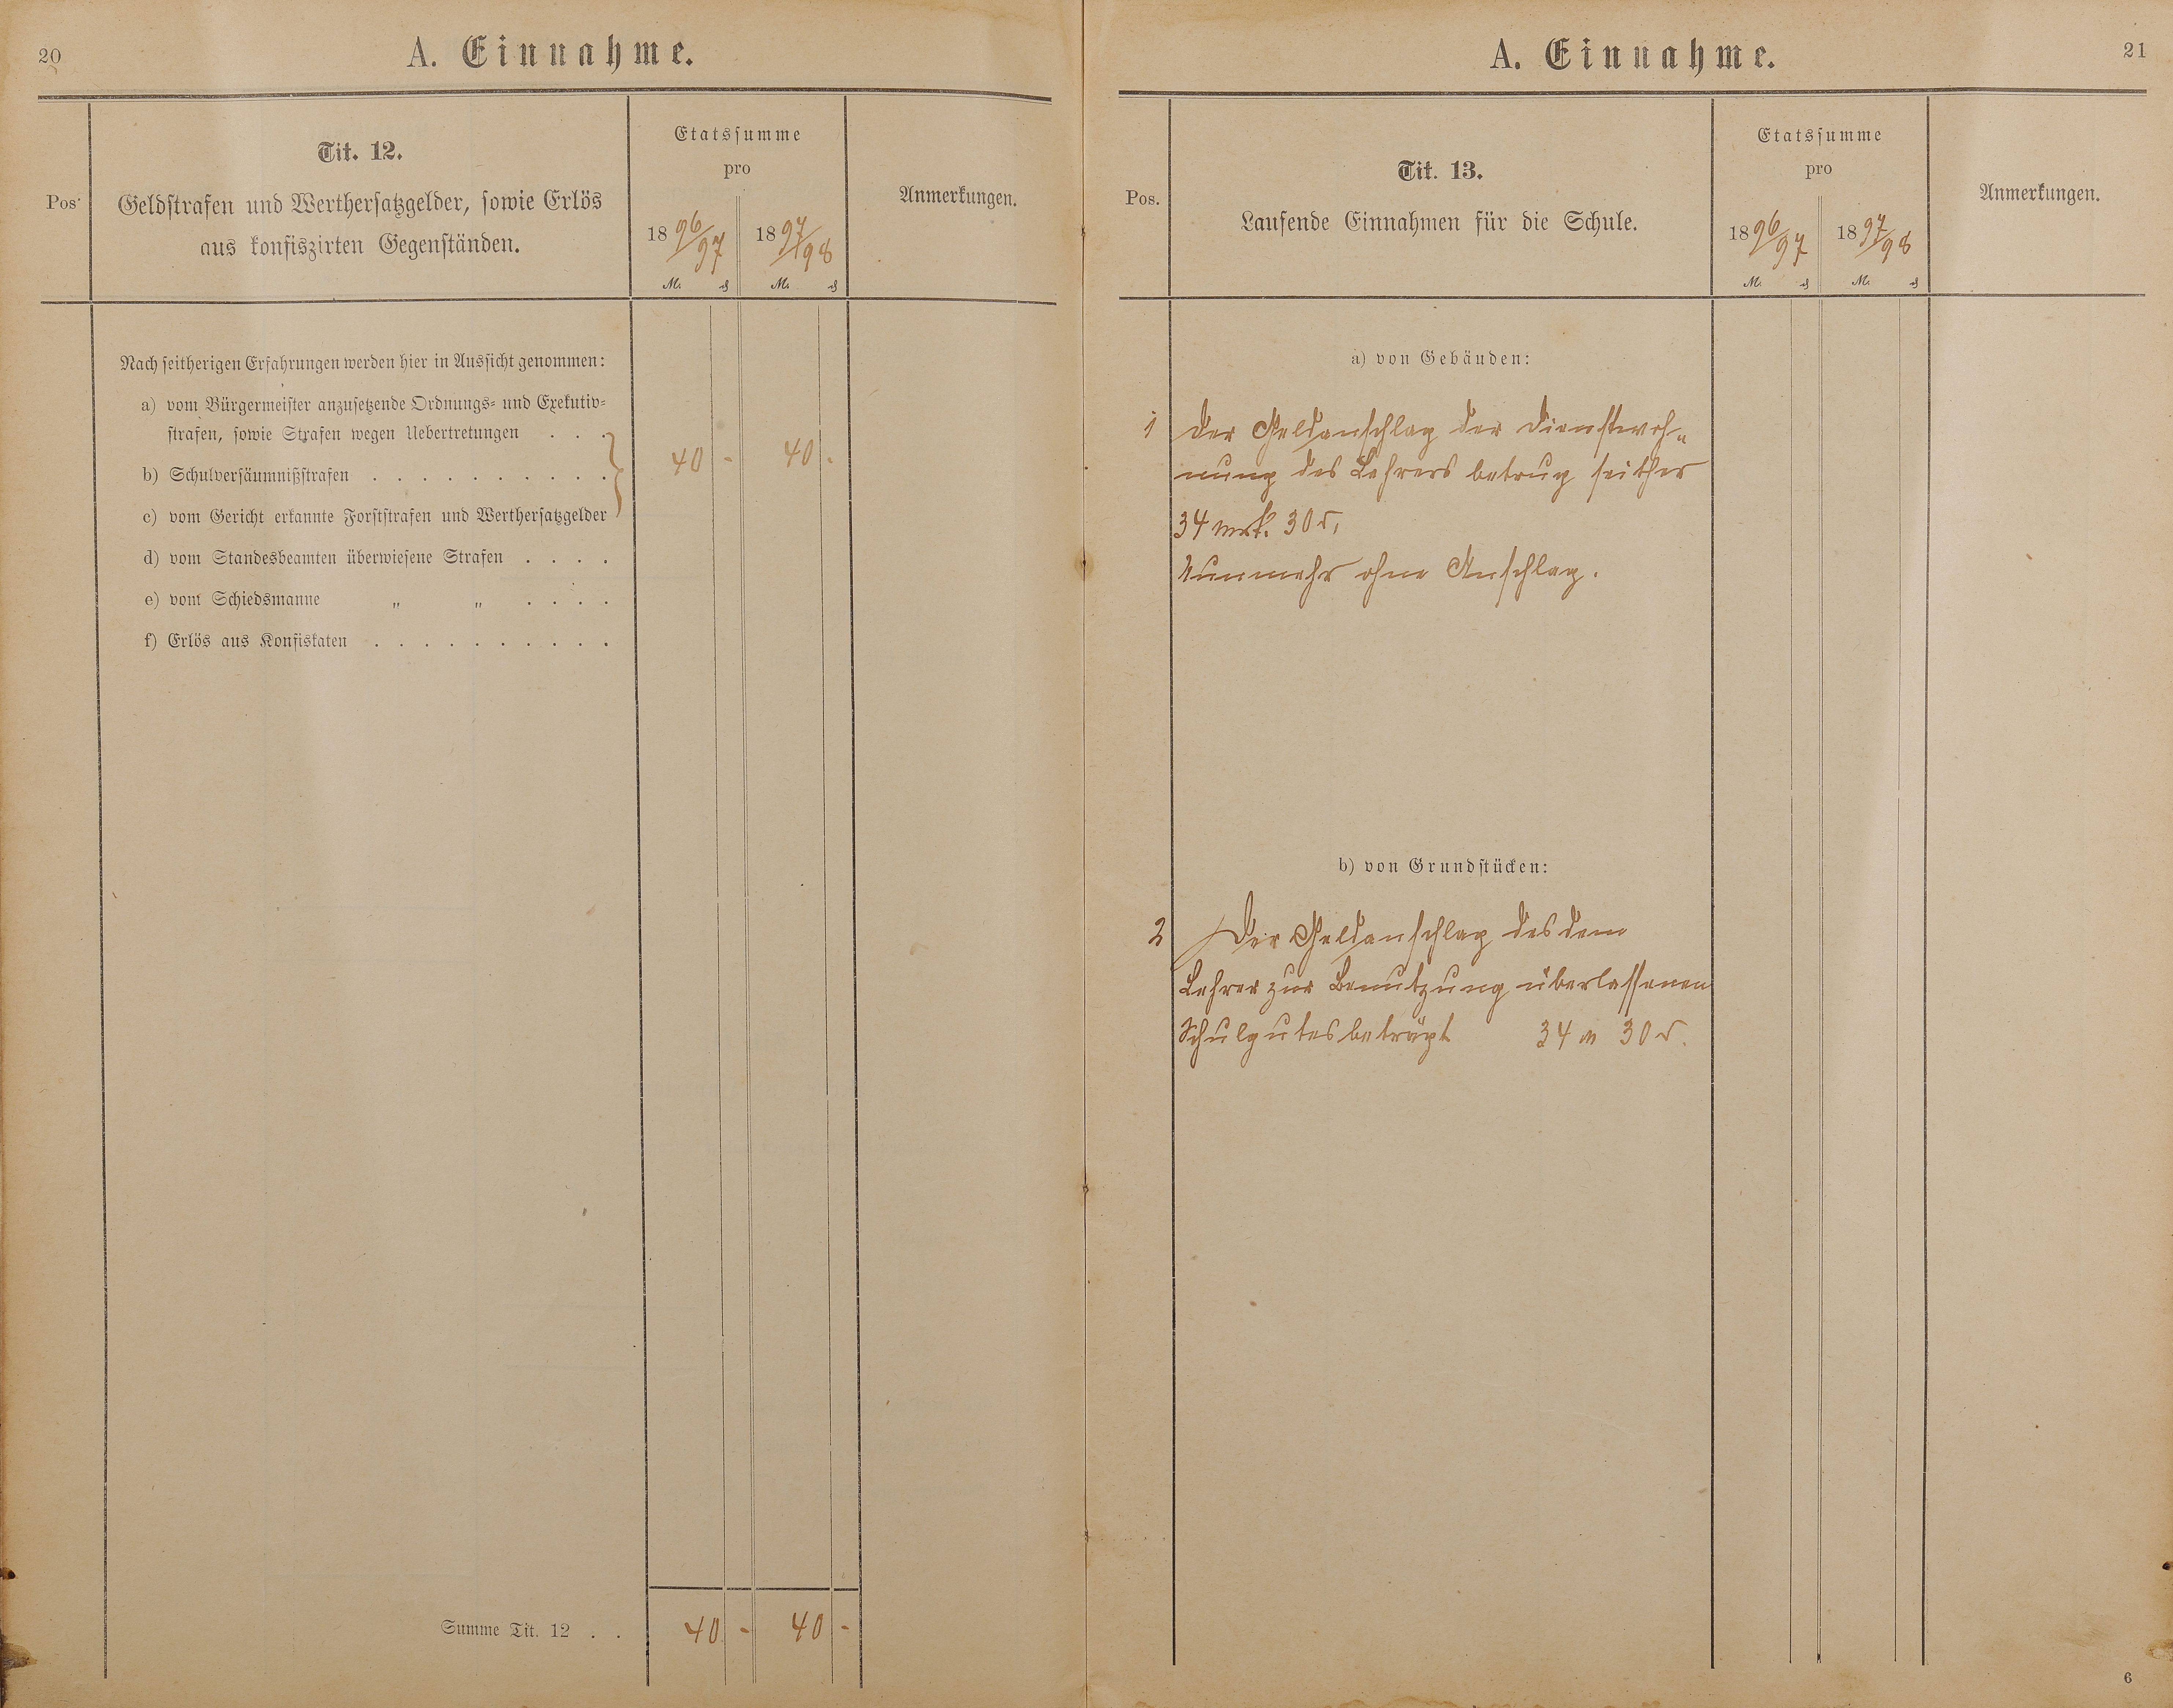 20
A. Einnahme.
Pos.
Tit. 12.
Geldstrafen und Werthersatzgelder, sowie Erlös
aus konfiszirten Gegenständen.
Etatssumme
pro
1896/97 1897/98
M. ₰ M. ₰
Anmerkungen.
Nach seitherigen Erfahrungen werden hier in Aussicht genommen:
a) vom Bürgermeister anzusetzende Ordnungs- und Exekutiv-
strafen, sowie Strafen wegen Uebertretungen . . .
b) Schulversäumnißstrafen . . . . . . . . . . 40 - 40 -
c) vom Gericht erkannte Forststrafen und Werthersatzgelder
d) vom Standesbeamten überwiesene Strafen . . . .
e) vom Schiedsmanne " " . . . .
f) Erlös aus Konfiskaten . . . . . . . . . .
Summe Tit. 12 . . 40 - 40 -
A. Einnahme.
21
Pos.
Tit. 13.
Laufende Einnahmen für die Schule.
Etatssumme
pro
1896/97 1897/98
M. ₰ M. ₰
Anmerkungen.
a) von Gebäuden:
1 Der Geldanschlag der Dienstwoh-
nung des Lehrers betrug seither
34 Mrk. 30 ₰,
Nunmehr ohne Anschlag.
b) von Grundstücken:
2 Der Geldanschlag des dem
Lehrer zur Benutzung überlassenen
Schulgutes beträgt 34 M 30 ₰.
6